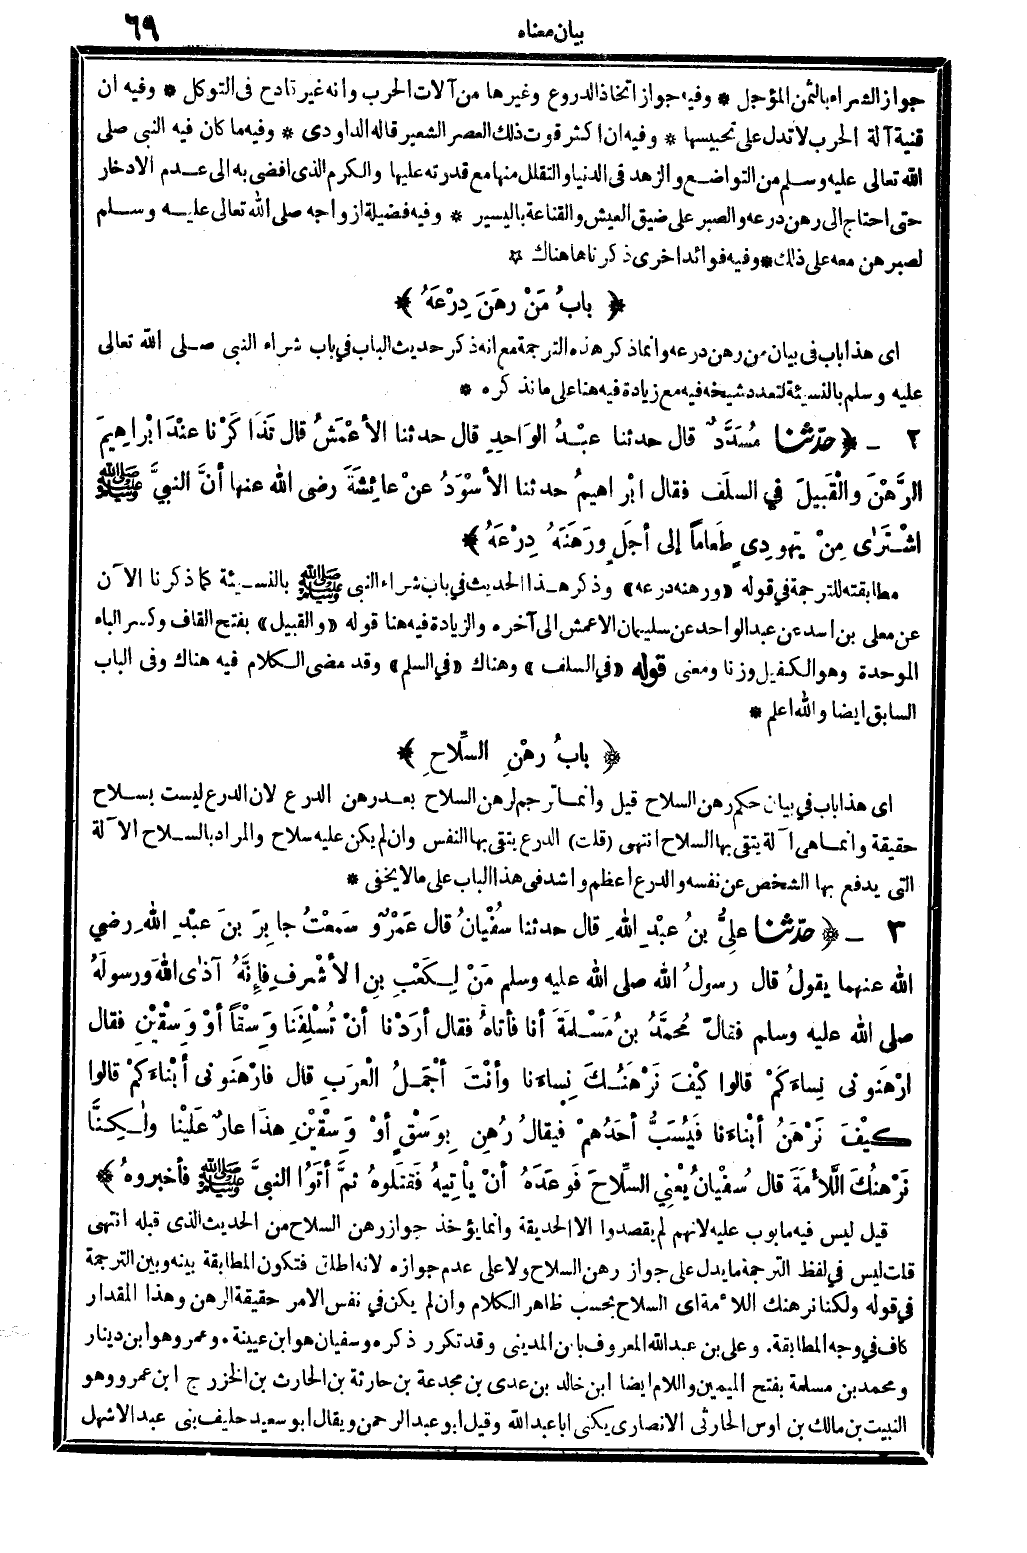 بيان معناه ٦٩
جواز الشراء بالثمن المؤجل * وفيه جواز اتخاذ الدروع وغيرها من آلات الحرب وانه غير قادح فى التوكل * وفيه ان
قنية آلة الحرب لا تدل على تحبيسها * وفيه ان اكثر قوت ذلك العصر الشعير قاله الداودى * وفيه ما كان فيه النبى صلى
الله تعالى عليه وسلم من التواضع والزهد فى الدنيا والتقلل منها مع قدرته عليها والكرم الذى افضى به الى عدم الادخار
حتى احتاج الى رهن درعه والصبر على ضيق العيش والقناعة باليسير * وفيه فضيلة ازواجه صلى الله تعالى عليه وسلم
لصبرهن معه على ذلك * وفيه فوائد اخرى ذكرناها هناك ☆
﴿ بابُ مَنْ رهَنَ دِرْعَهُ ﴾
اى هذا باب فى بيان من رهن درعه وانما ذكر هذه الترجمة مع انه ذكر حديث الباب في باب شراء النبى صلى الله تعالى
عليه وسلم بالنسيئة لتعدد شيخه فيه مع زيادة فيه هنا على ما نذكره *
٢ ـ ﴿ حدّثنا مُسَدَّدٌ قال حدثنا عبْدُ الوَاحِدِ قال حدثنا الأعْمَشُ قال تَذَاكَرْنا عنْدَ ابْراهِيمَ
الرَّهْنَ والْقَبِيلَ في السلَف فقال ابْراهيمُ حدثنا الأسْوَدُ عنْ عائِشَةَ رضى الله عنها أنَّ النبيَّ ﷺ
اشْتَرَى مِنْ يَهودِىٍ طَعاماً إلى أجَلٍ ورَهَنَهُ دِرْعَهُ ﴾
مطابقته للترجمة في قوله «ورهنه درعه» وذكر هذا الحديث في باب شراء النبى ﷺ بالنسيئة كما ذكرنا الآن
عن معلى بن اسد عن عبد الواحد عن سليمان الاعمش الى آخره والزيادة فيه هنا قوله «والقبيل» بفتح القاف وكسر الباء
الموحدة وهو الكفيل وزنا ومعنى قوله «في السلف» وهناك «في السلم» وقد مضى الكلام فيه هناك وفى الباب
السابق ايضا والله اعلم *
﴿ بابُ رهْنِ السِّلاحِ ﴾
اى هذا باب في بيان حكم رهن السلاح قيل وانما ترجم لرهن السلاح بعد رهن الدرع لان الدرع ليست بسلاح
حقيقة وانما هى آلة يتقى بها السلاح انتهى (قلت) الدرع يتقى بها النفس وان لم يكن عليه سلاح والمراد بالسلاح الآلة
التى يدفع بها الشخص عن نفسه والدرع اعظم واشد في هذا الباب على ما لا يخفى *
٣ ـ ﴿ حدّثنا عليُّ بنُ عبْدِ اللهِ قال حدثنا سُفْيانُ قال عَمْرٌو سَمعْتُ جابِرَ بنَ عبْدِ اللهِ رضي
الله عنهما يقولُ قال رسولُ الله صلى الله عليه وسلم مَنْ لِكَعْبِ بنِ الأشْرفِ فإنَّهُ آذَى اللهَ ورسولَهُ
صلى الله عليه وسلم فقال مُحمَّدُ بنُ مَسْلمَةَ أنا فأتاهُ فقال أرَدْنا أنْ تُسْلِفَنَا وَسْقاً أوْ وَسقَيْنِ فقال
ارْهَنونى نِساءَكمْ قالوا كيْفَ نَرْهَنُكَ نِساءَنا وأنْتَ أجْمَلُ العرَبِ قال فارْهنونى أبْناءَكمْ قالوا
كيْفَ نَرْهَنُ أبْناءَنا فَيُسَبُّ أحَدُهمْ فيقالُ رُهِنَ بِوَسْقٍ أوْ وَسقَيْنِ هذَا عارٌ علَيْنا ولٰكِنَّا
نَرْهنُكَ الَّلأْمَةَ قال سُفْيانُ يَعْنِي السِّلاحَ فَوَعَدَهُ أنْ يأتِيهُ فَقتَلوهُ ثمَّ أتَوُا النبيَّ ﷺ فأخبروهُ ﴾
قيل ليس فيه ما بوب عليه لانهم لم يقصدوا الا الخديعة وانما يؤخذ جواز رهن السلاح من الحديث الذى قبله انتهى
قلت ليس في لفظ الترجمة ما يدل على جواز رهن السلاح ولا على عدم جوازه لانه اطلق فتكون المطابقة بينه وبين الترجمة
في قوله ولكنا نرهنك اللأمة اى السلاح بحسب ظاهر الكلام وان لم يكن في نفس الامر حقيقة الرهن وهذا المقدار
كاف في وجه المطابقة. وعلى بن عبد الله المعروف بابن المدينى وقد تكرر ذكره وسفيان هو ابن عيينة. وعمرو هو ابن دينار
ومحمد بن مسلمة بفتح الميمين واللام ايضا ابن خالد بن عدى بن مجدعة بن حارثة بن الحارث بن الخزرج ابن عمرو وهو
النبيت بن مالك بن اوس الحارثى الانصارى يكنى ابا عبد الله وقيل ابو عبد الرحمن ويقال ابو سعيد حليف بنى عبد الاشهل